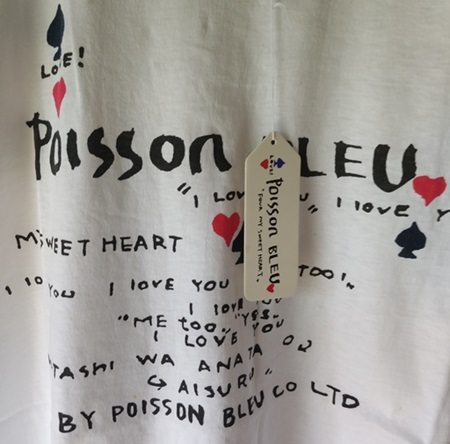 LOVE!
POISSON BLEU
"I LOVE YOU" I LOVE
MY SWEET HEART
I LOVE YOU I LOVE YOU TOO!
I LOVE YOU
"ME too" "YES"
I LOVE YOU
WATASHI WA ANATA O
AISURU"
BY POISSON BLEU CO LTD
LOVE!
POISSON BLEU
"FOUR MY SWEET HEART"